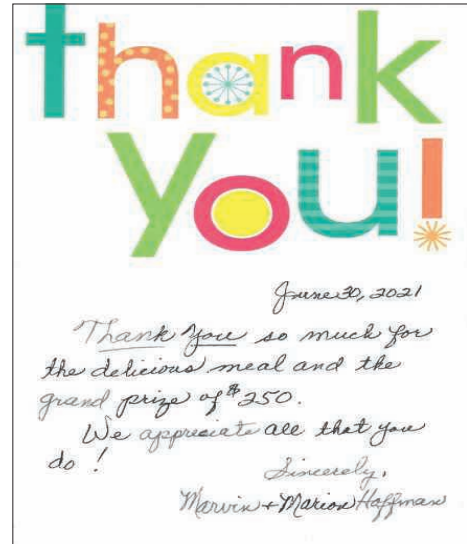 thank
you!
June 30, 2021
Thank You so much for
the delicious meal and the
grand prize of $250.
We appreciate all that you
do !
Sincerely,
Marvin + Marion Hoffman